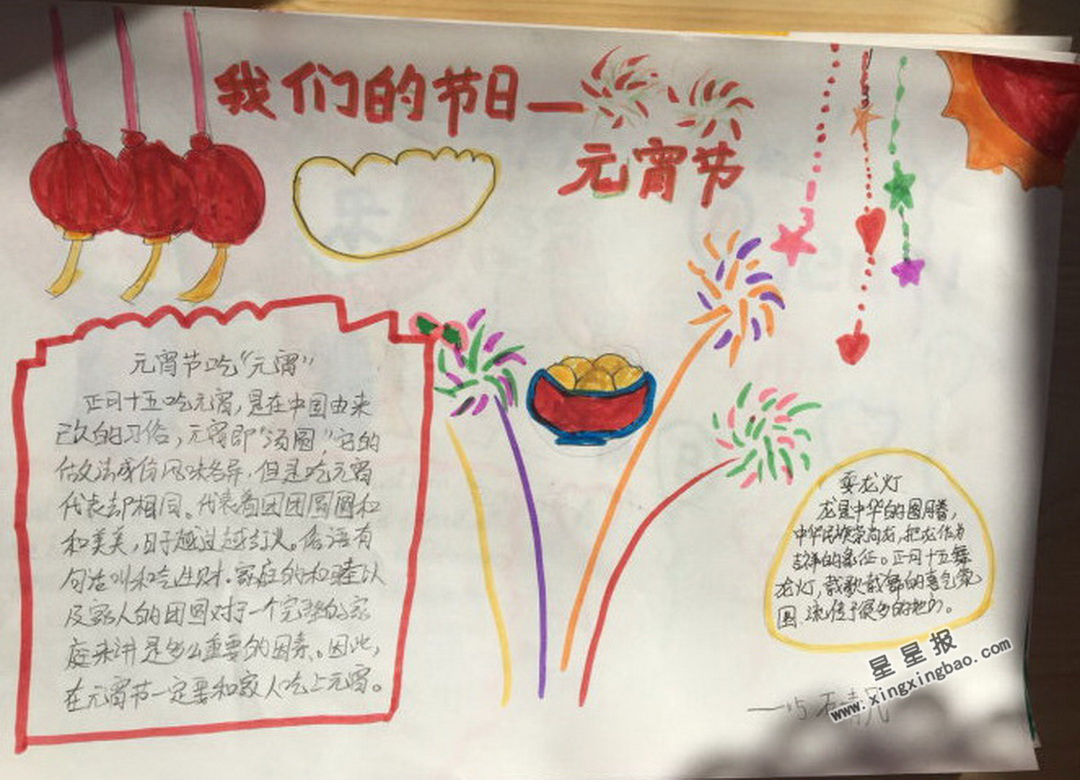 我们的节日—
元宵节
元宵节吃“元宵”
正月十五吃元宵，是在中国由来
已久的习俗，元宵即“汤圆”，它的
做法成份风味各异，但是吃元宵
代表却相同。代表着团团圆圆和
和美美，日子越过越红火。俗语有
句话叫和气生财。家庭的和睦以
及家人的团圆对于一个完整的家
庭来讲是多么重要的因素。因此，
在元宵节一定要和家人吃上元宵。
耍龙灯
龙是中华的图腾，
中华民族崇尚龙，把龙作为
吉祥的象征。正月十五舞
龙灯，载歌载舞的喜气氛
围 流传于很多的地方。
星星报
www.xingxingbao.com